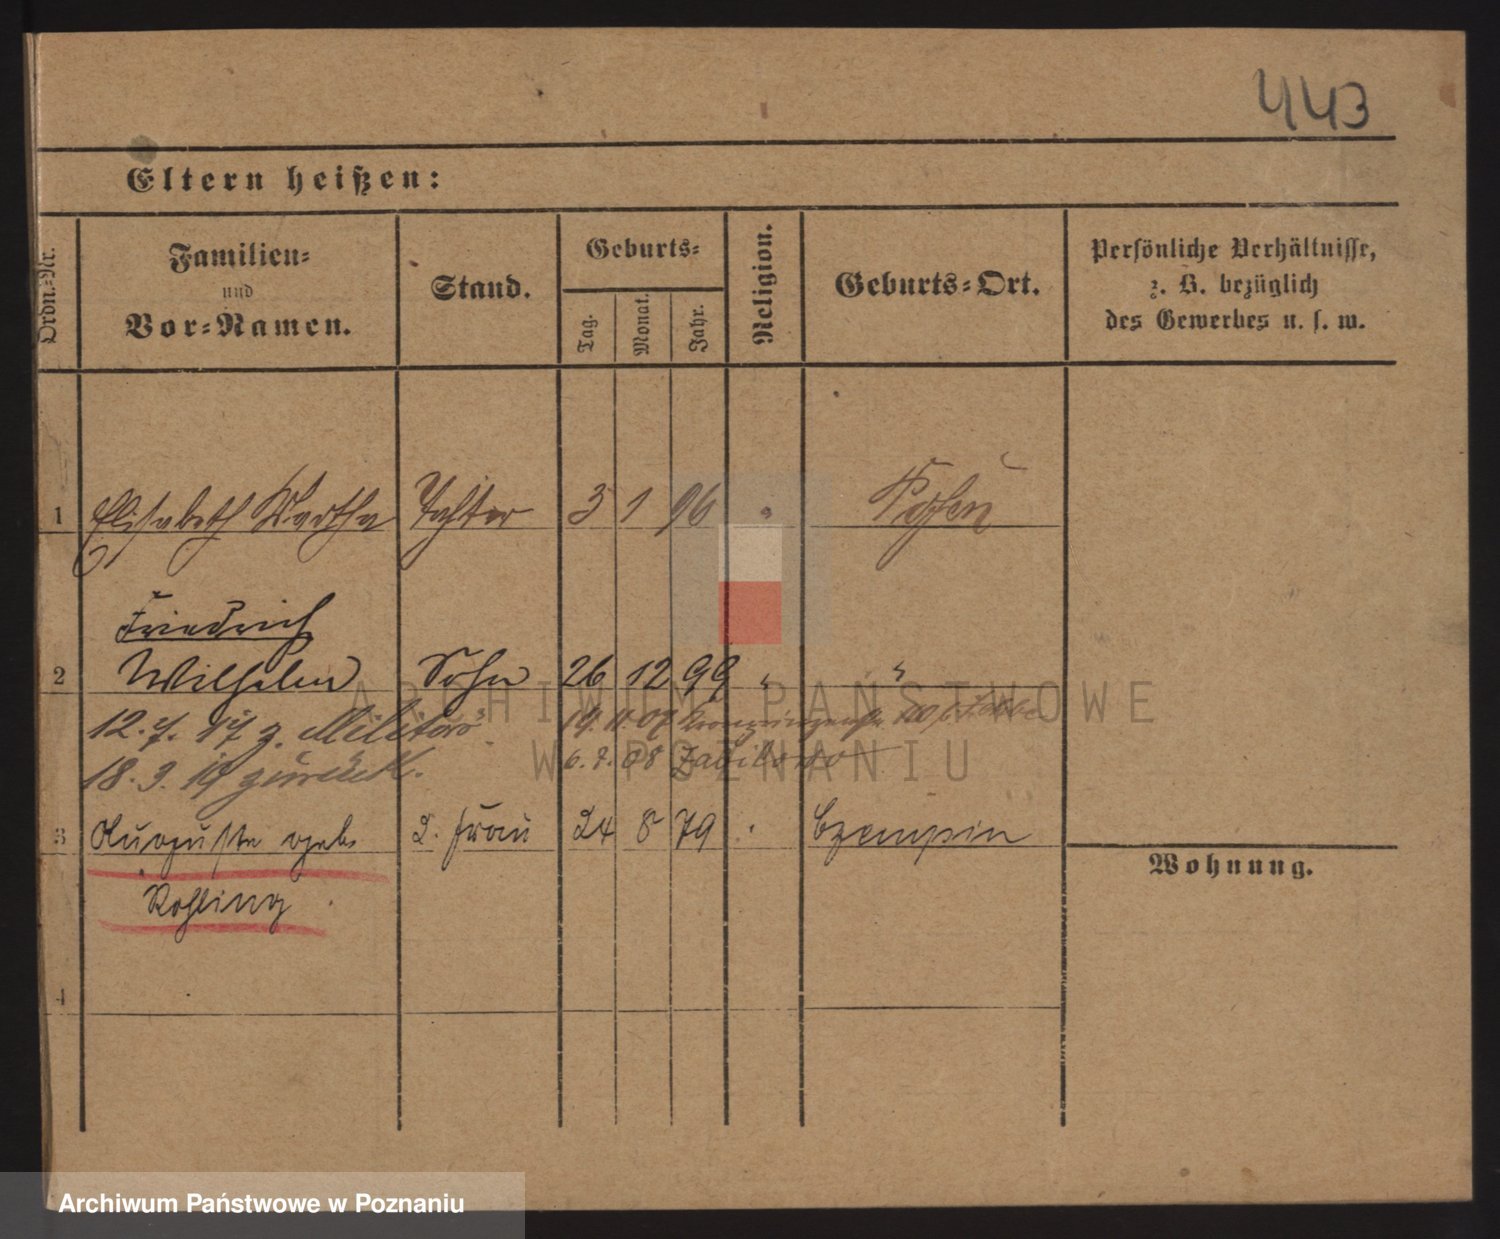 443
Eltern heißen:
Ordn.-Nr.
Familien-
und
Vor-Namen.
Stand.
Geburts-
Tag.
Monat.
Jahr.
Religion.
Geburts-Ort.
Persönliche Verhältnisse,
z. B. bezüglich
des Gewerbes u. s. w.
1 Elisabeth Martha Tochter 3 1 96 " Posen
Friedrich
2 Wilhelm Sohn 26 12 99 " "
12.7.17 z. Militär 19.11.07
18.3.19 zurück. 6.7.08 Zabikowo
3 Auguste geb. 2. Frau 24 8 79 Czempin
Rohling
4
Wohnung.
ARCHIWUM PAŃSTWOWE
W POZNANIU
Archiwum Państwowe w Poznaniu